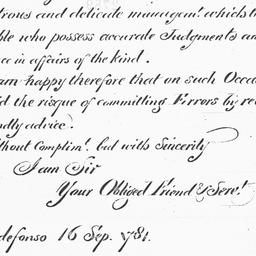 trous and delicate managem.t which to
ble who possess accurate Judgments an
ce in affairs of the kind.
am happy therefore that on such Occa
id the risque of committing Errors by re
ndly advice.
thout Complim.t but with Sincerity
I am Sir
Your Obliged Friend & Serv.t
defonso 16 Sep. 1781.